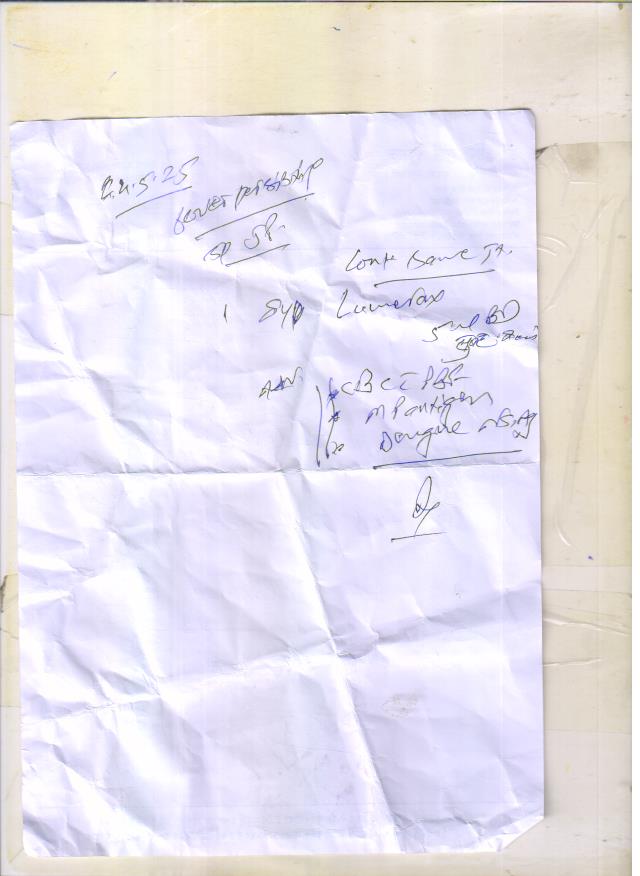 24.5.25
fever persisting
Cont Same Tx.
1 Syp Lumerax
5 ml BD
Adv. * CBC PBF
* MP antigen
* Dengue NS1 Ag